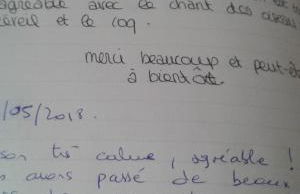 agréable avec le chant des oiseau
réveil et le coq.
merci beaucoup et peut-êt
à bientôt.
/05/2018.
son très calme, agréable !
s avons passé de beau